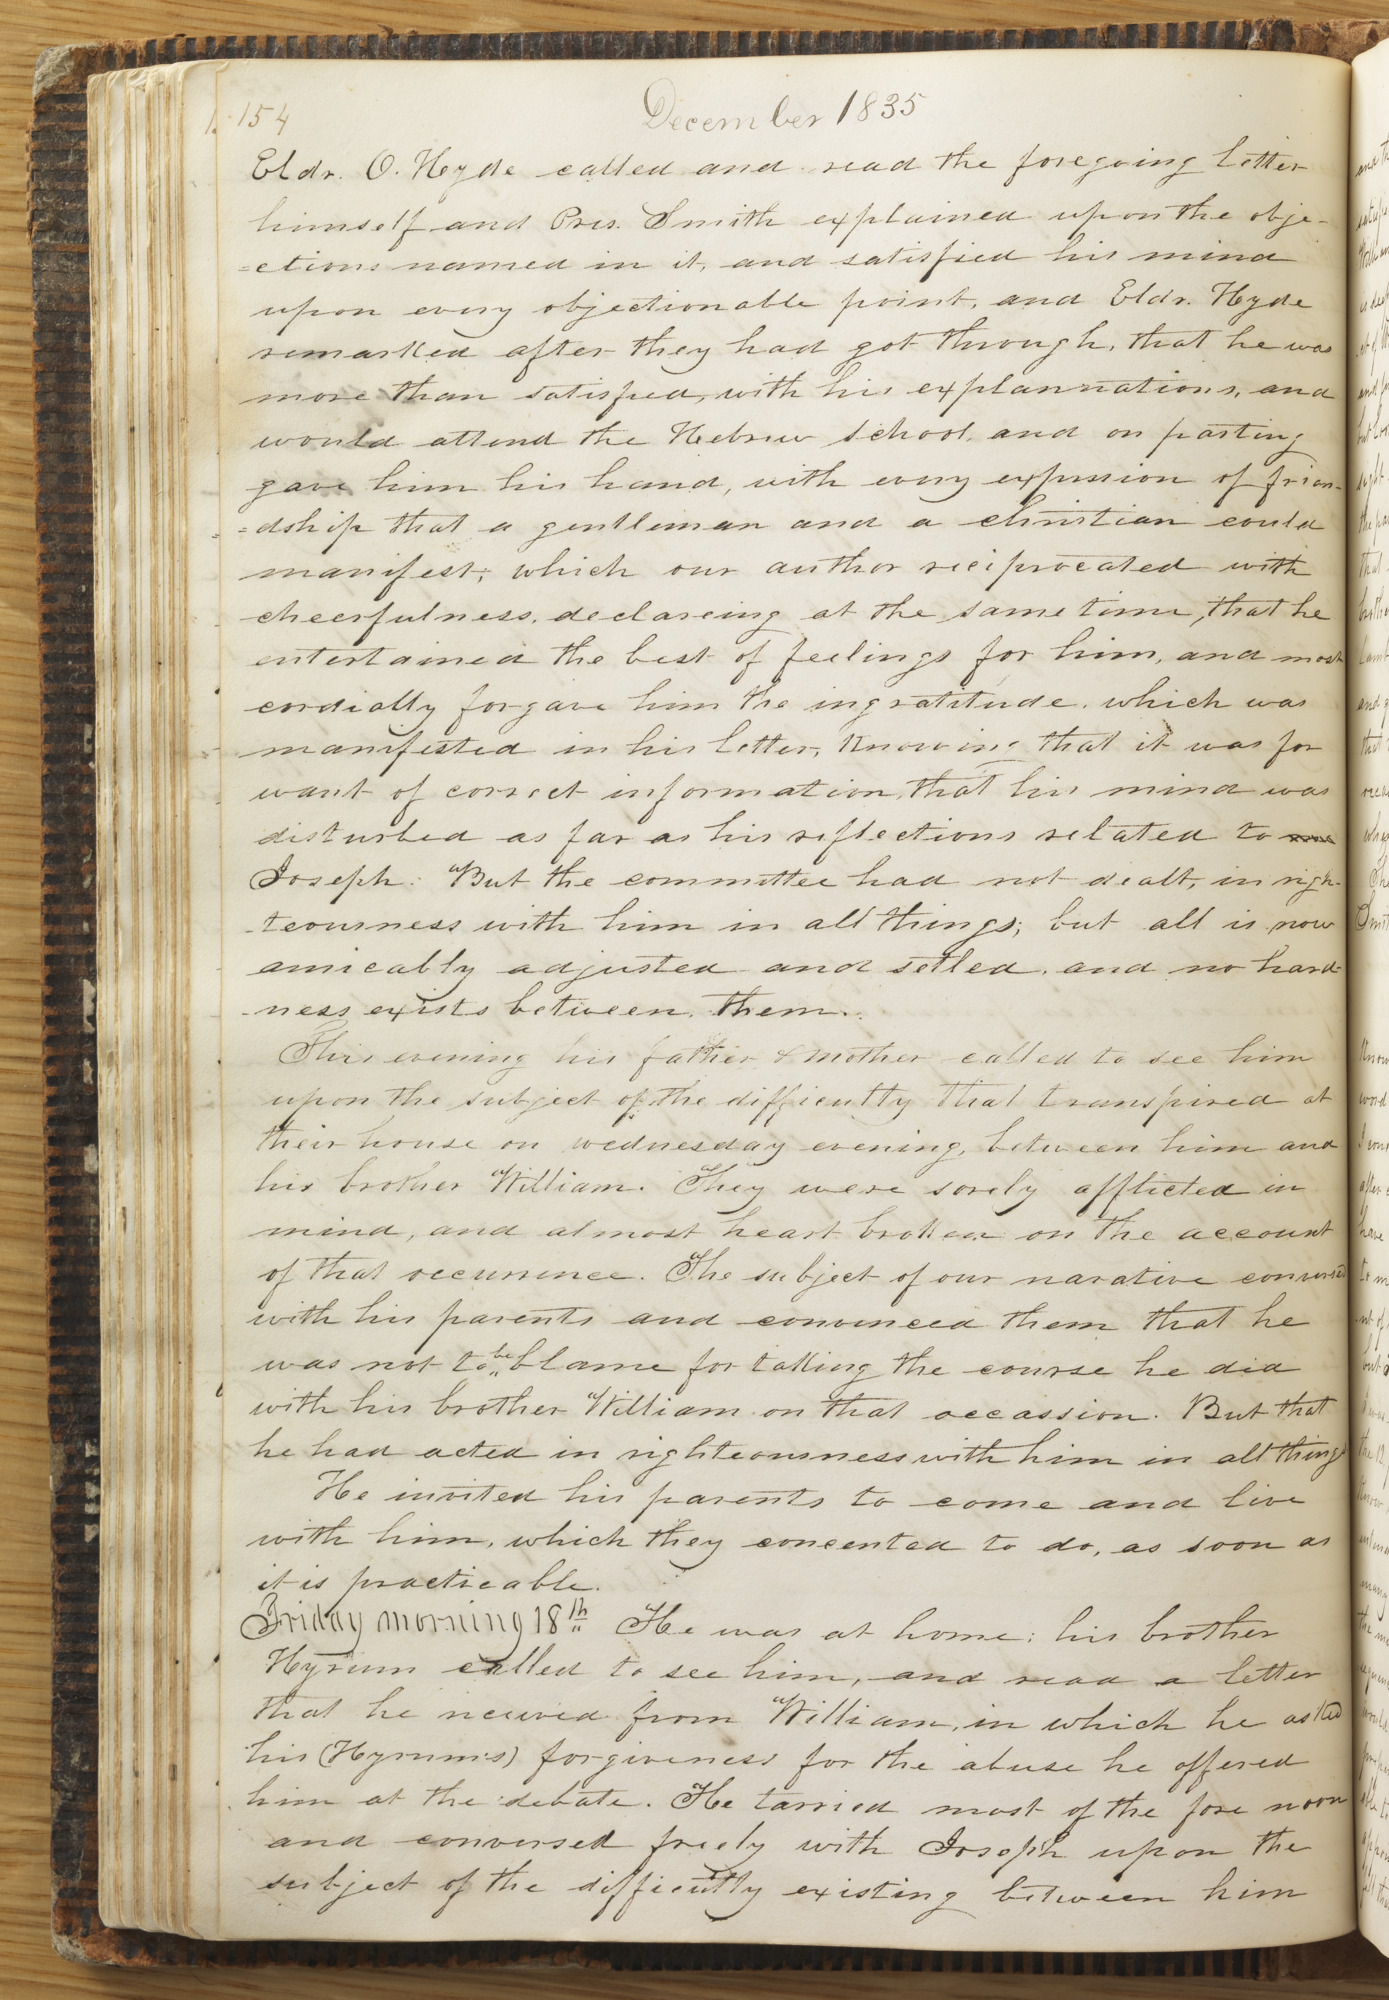 154
December 1835
Eldr. O. Hyde called and read the foregoing letter
himself and Pres. Smith explained upon the obje-
=ctions named in it, and satisfied his mind
upon every objectionable point, and Eldr. Hyde
remarked after they had got through, that he was
more than satisfied, with his explannations, and
would attend the Hebrew school, and on parting
gave him his hand, with every expression of frien-
=dship that a gentleman and a christian could
manifest; which our author reciprocated with
cheerfulness, declareing at the same time, that he
entertained the best of feelings for him, and most
cordially forgave him the ingratitude, which was
manifested in his letter, knowing that it was for
want of correct information, that his mind was
disturbed as far as his reflections related to
Joseph. But the committee had not dealt, in righ-
-teousness with him in all things; but all is now
amicably adjusted and setled, and no hard-
-ness exists between them.
This evening his father & mother called to see him
upon the subject of the difficulty that transpired at
their house on wednesday evening, between him and
his brother William. They were sorely afflicted in
mind, and almost heart broken on the account
of that occurrence. The subject of our narative conversed
with his parents and convinced them that he
was not to be blame for taking the course he did
with his brother William on that occassion. But that
he had acted in righteousness with him in all things
He invited his parents to come and live
with him, which they concented to do, as soon as
it is practicable.
Friday morning 18th He was at home; his brother
Hyrum called to see him, and read a letter
that he received from William, in which he asked
his (Hyrum's) forgiveness for the abuse he offered
him at the debate. He tarried most of the fore noon
and conversed freely with Joseph upon the
subject of the difficulty existing between him